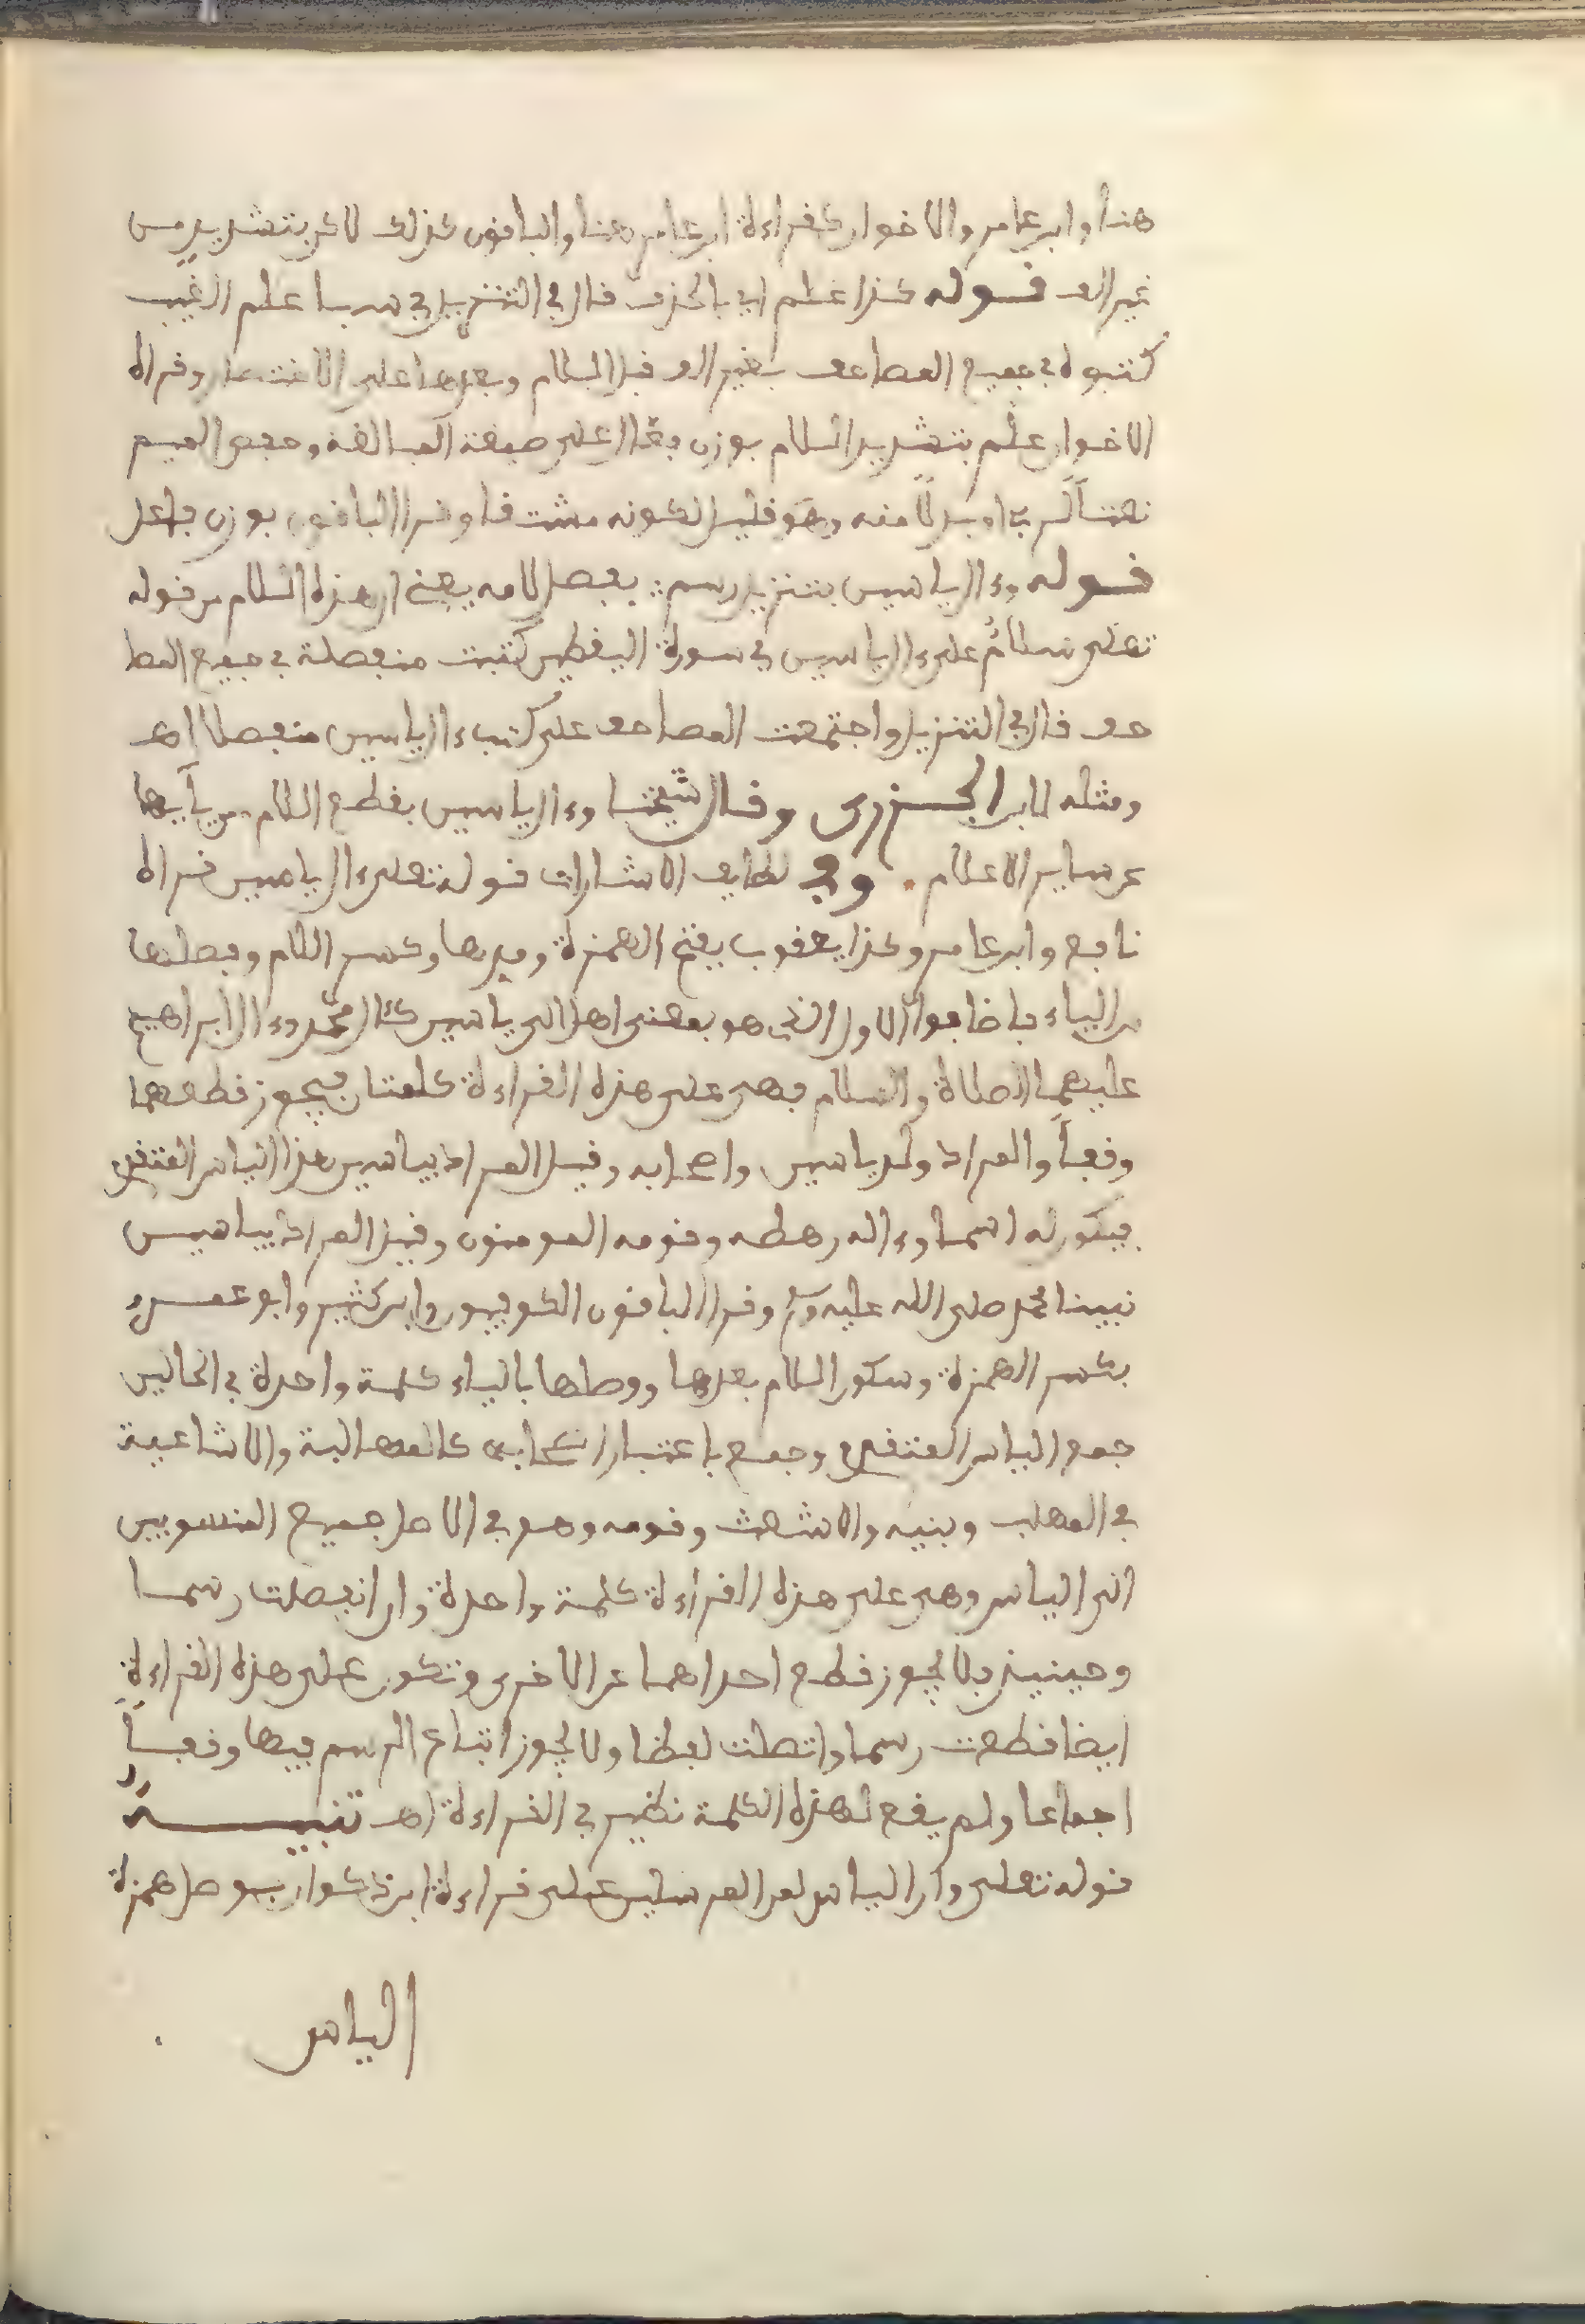 هنا وابن عامر والاخوان كقراءة ابن عامر هنا والباقون كذلك لاكن بتشديد من
غير الف قوله كذا علم اي بالحذف قال في التنزيل في سبا علم الغيب
كتبوه في جميع المصاحف بغير الف قبل اللام وبعدها على الاختصار وقراه
الاخوان علّم بتشديد اللام بوزن فعّال على صيغة المبالغة وخفض الميم
نعتاً لربي او بدلاً منه وهو قليل لكونه مشتقا وقرا الباقون بوزن فاعل
قوله وءال ياسين بتنزيل رسم بفصل لامه يعني ان هذه اللام من قوله
تعلى سلام على ءال ياسين في سورة اليقطين كتبت منفصلة في جميع المصا
حف قال في التنزيل واجتمعت المصاحف على كتب ءال ياسين منفصلا اهـ
ومثله لابن الجزري وقال شيخنا وءال ياسين بقطع اللام من يأيها
عن ساير الاعلام . وفي لطايف الاشارات قوله تعلى ءال ياسين قراه
نافع وابن عامر وكذا يعقوب بفتح الهمزة ومدها وكسر اللام وفصلها
من الياء فاضافوا الاول الذي هو بمعنى اهل الى ياسين كئال محمد وءال ابراهيم
عليهما الصلاة والسلام فهي على هذه القراءة كلمتان فيجوز قطعهما
وقفاً والمراد ولد ياسين واصحابه وقيل المراد بياسين هذا الياس المتقدم
فيكون له اسما وءاله رهطه وقومه المومنون وقيل المراد بياسين
نبينا محمد صلى الله عليه وسلم وقرا الباقون الكوفيون وابن كثير وابو عمرو
بكسر الهمزة وسكون اللام بعدها ووصلها بالياء كلمة واحدة في الحالين
جمع الياس المتقدم وجمع باعتبار اصحابه كالمهالبة والاشاعثة
في المهلب وبنيه والاشعث وقومه وهو في الاصل جميع المنسوبين
الى الياس وهي على هذه القراءة كلمة واحدة وان انفصلت رسما
وحينيذ فلا يجوز قطع احداهما عن الاخرى وتكون على هذه القراءة
ايضا قطعت رسما واتصلت لفظا ولا يجوز اتباع الرسم فيها وقفاً
اجماعا ولم يقع لهذه الكلمة نظير في القراءة اهـ تنبيهٌ
قوله تعلى وان الياس لمن المرسلين على قراءة ابن ذكوان بوصل همزة
الياس